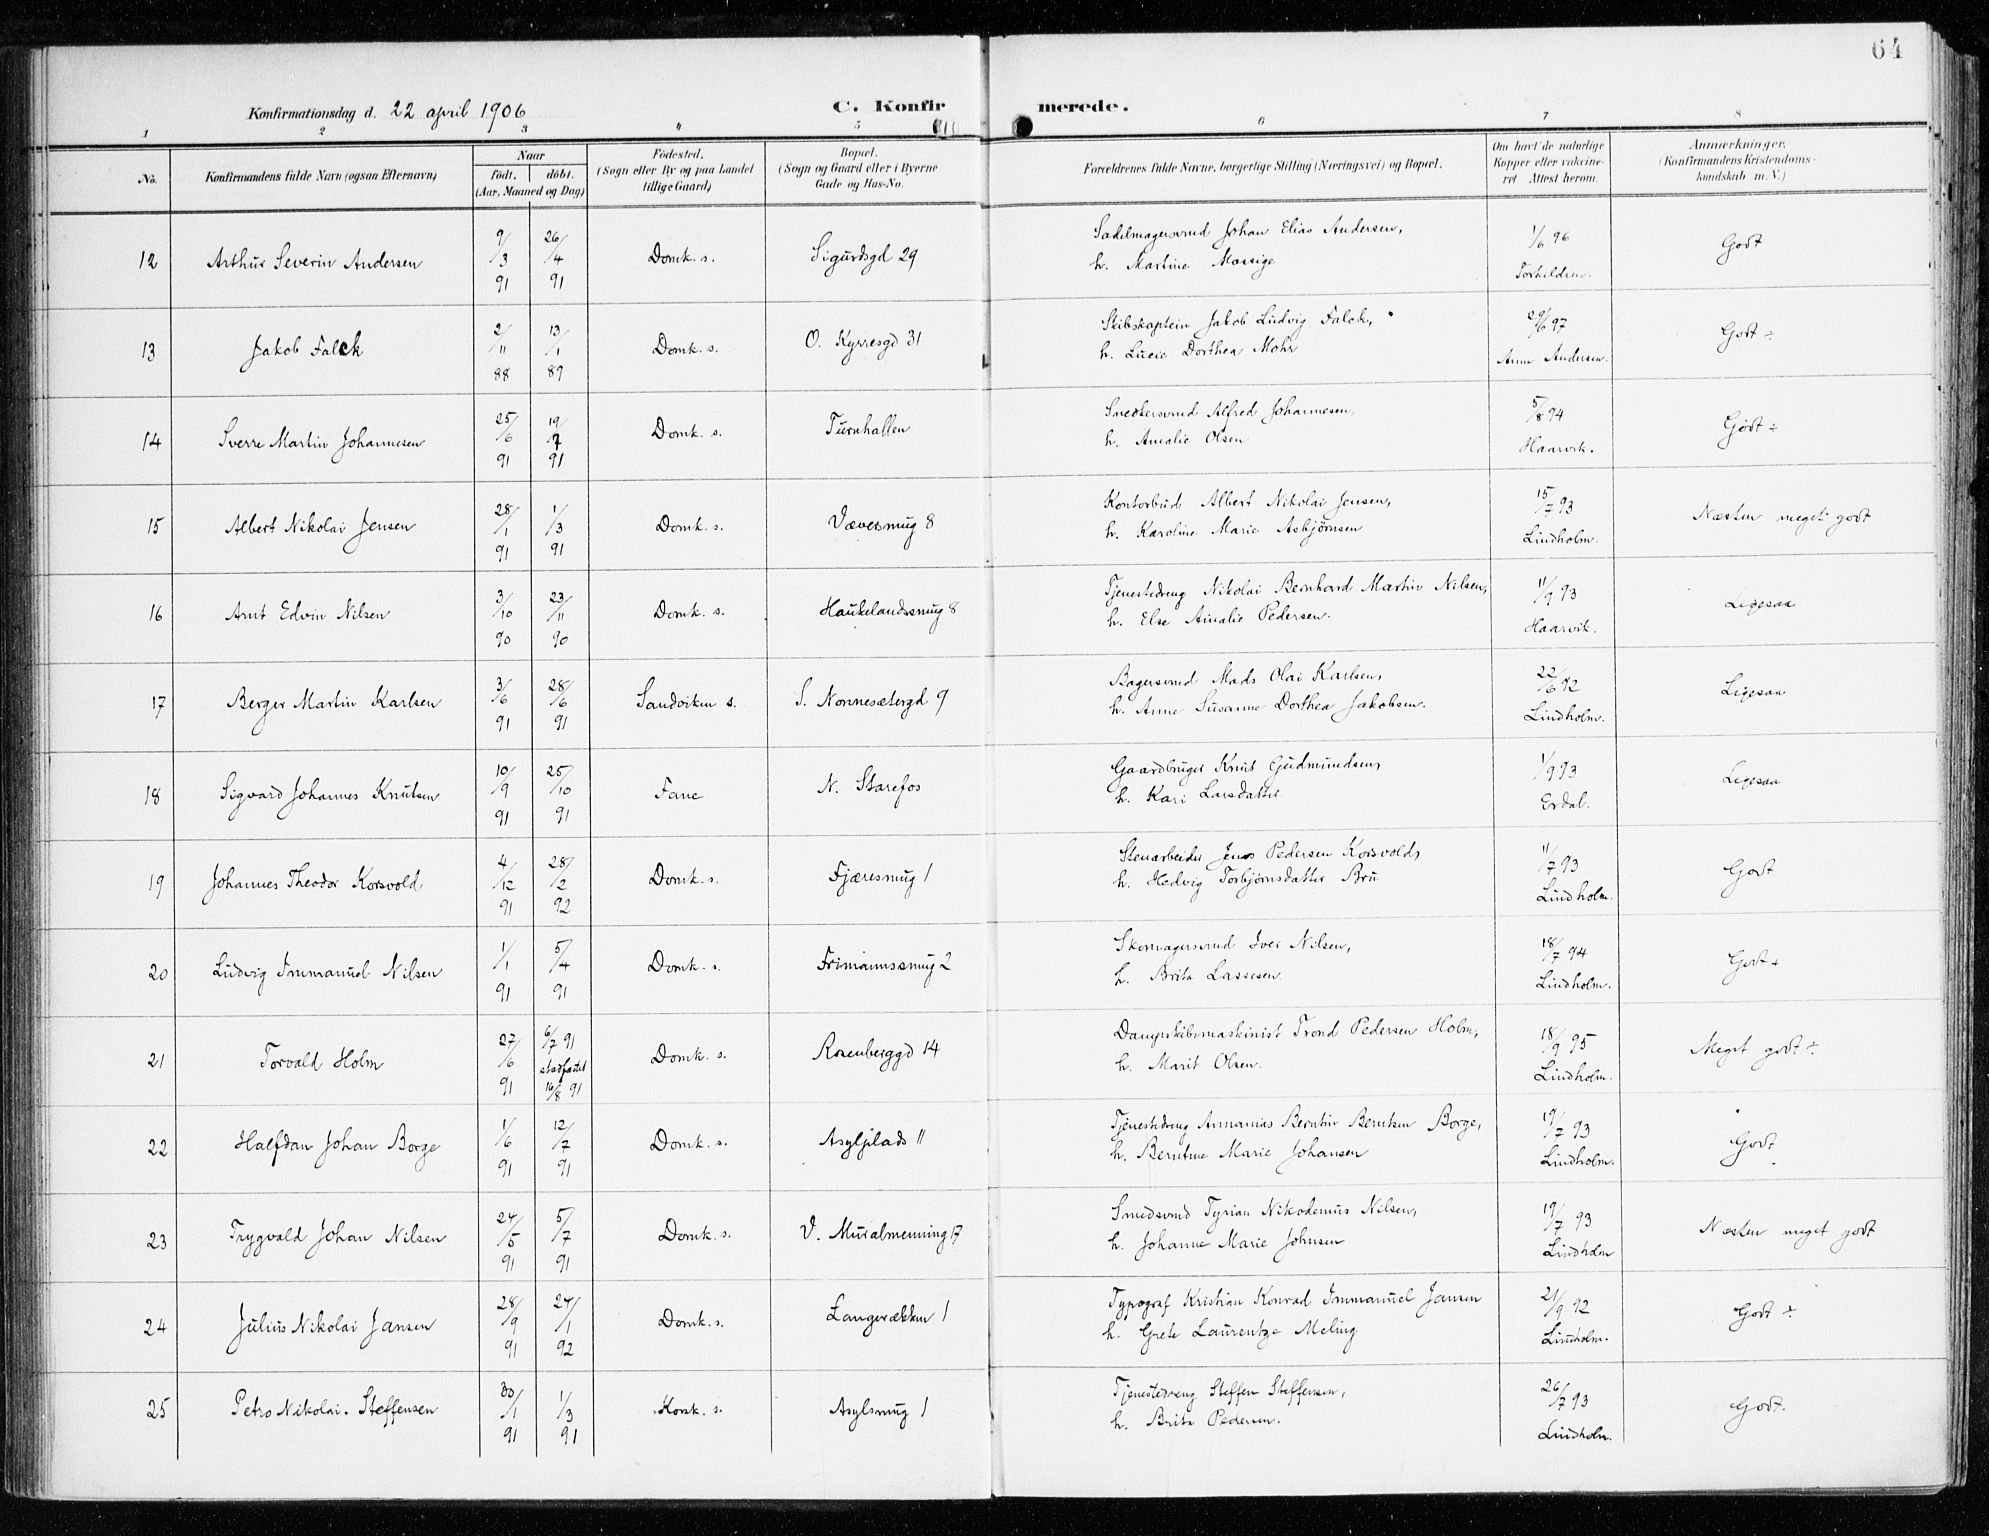 64
Konfirmationsdag d. 22 april 1906
C. Konfirmerede.
1 2 3 4 5 6 7 8
No.
Konfirmandens fulde Navn (ogsaa Efternavn)
Naar
født. døbt.
(Aar, Maaned og Dag)
Fødested.
(Sogn eller By og paa Landet
tillige Gaard)
Bopæl.
(Sogn og Gaard eller i Byerne
Gade og Hus-No.
Forældrenes fulde Navne, borgerlige Stilling (Næringsvei) og Bopæl.
Om havt de naturlige
Kopper eller vakcine-
ret Attest herom.
Anmærkninger.
(Konfirmandens Kristendoms-
kundskab m. V.)
12 Arthur Severin Andersen 9/3 91 26/4 91 Domk. s. Sigurdsgd 29
Sadelmagersvend Johan Elias Andersen,
h. Martine Mossige
1/6 96
Torkildsen.
Godt
13 Jakob Falck 2/11 88 13/1 89 Domk. s. O. Kyrresgd 31
Skibskaptein Jakob Ludvig Falck,
h. Lucie Dorthea Mohr
29/6 97
Anna Andersen.
Godt ÷
14 Sverre Martin Johannesen 25/6 91 19/7 91 Domk. s. Turnhallen
Snedkersvend Alfred Johannesen,
h. Amalie Olsen
5/8 94
Haarvik.
Godt ÷
15 Albert Nikolai Jensen 28/1 91 1/3 91 Domk. s. Væversmug 8
Kontorbud Albert Nikolai Jensen,
h. Karoline Marie Asbjørnsen
15/7 93
Lindholm.
Næsten meget godt
16 Arnt Edvin Nilsen 3/10 90 23/11 90 Domk. s. Haukelandssmug 8
Tjenestedreng Nikolai Bernhard Martin Nilsen,
h. Else Amalie Pedersen.
11/9 93
Haarvik.
Ligesaa
17 Berger Martin Karlsen 3/6 91 28/6 91 Sandviken s. S. Nonnesætergd 9
Bagersvend Mads Olai Karlsen,
h. Anne Susanne Dorthea Jakobsen.
22/6 92
Lindholm.
Ligesaa
18 Sigvard Johannes Knutsen 10/9 91 25/10 91 Fane N. Starefos
Gaardbruger Knut Gudmundsen,
h. Kari Larsdatter.
1/9 93
Erdal.
Ligesaa
19 Johannes Theodor Korsvold 4/12 91 28/2 92 Domk. s. Fjæresmug 1
Stenarbeider Jens Pedersen Korsvold,
h. Hedvig Torbjørnsdatter Bru
11/7 93
Lindholm.
Godt
20 Ludvig Immanuel Nilsen 1/1 91 5/4 91 Domk. s. Frimannssmug 2
Skomagersvend Iver Nilsen,
h. Brita Lassesen.
18/7 94
Lindholm.
Godt +
21 Torvald Holm 27/6 91 6/7 91 stadfæstet 16/8 91 Domk. s. Rosenberggd 14
Dampskibsmaskinist Trond Pedersen Holm,
h. Marit Olsen.
18/9 95
Lindholm.
Meget godt ÷
22 Halfdan Johan Borge 1/6 91 12/7 91 Domk. s. Asylplads 11
Tjenestedreng Annanias Berntin Berntsen Borge,
h. Berntine Marie Johansen
19/7 93
Lindholm.
Godt
23 Trygvald Johan Nilsen 24/5 91 5/7 91 Domk. s. V. Muralmenning 17
Smedsvend Tyrian Nikodemus Nilsen,
h. Johanne Marie Johnsen
19/7 93
Lindholm
Næsten meget godt
24 Julius Nikolai Jansen 28/9 91 24/1 92 Domk. s. Langerækken 1
Typograf Kristian Konrad Immanuel Jansen
h. Grete Laurentze Meling
21/9 92
Lindholm.
Godt ÷
25 Petro Nikolai Steffensen 30/1 91 1/3 91 Korsk. s. Asylsmug 1
Tjenestedreng Steffen Steffensen,
h. Brita Pedersen.
26/7 93
Lindholm.
Godt.